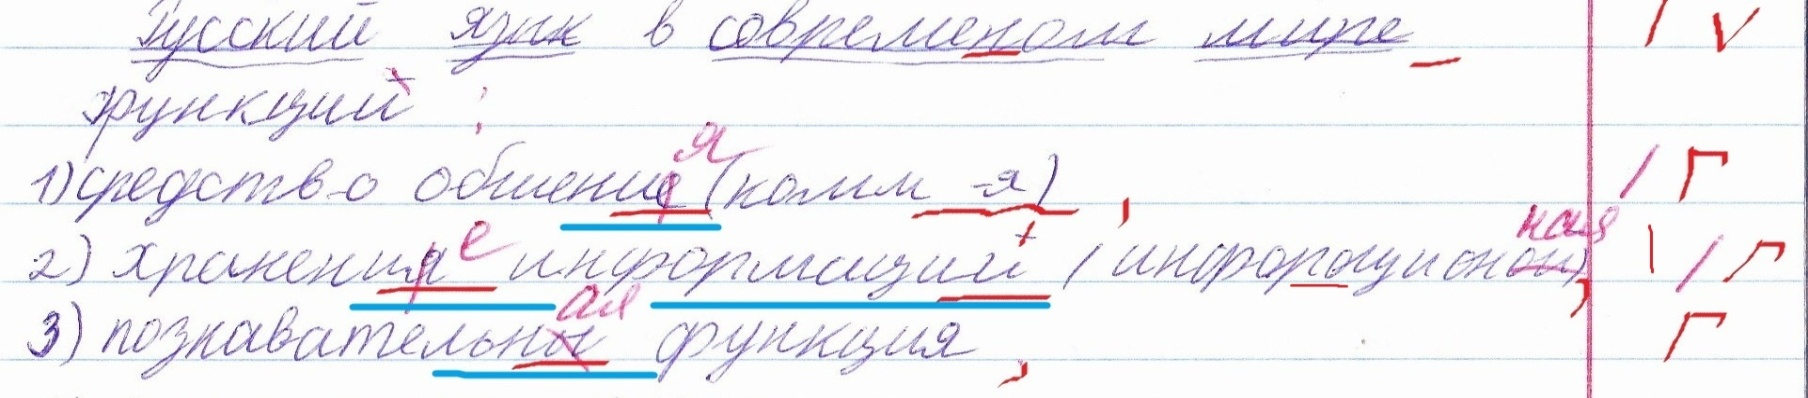 Русский язык в современом мире
функций :
1) средство обшение я (комм -я) ,
2) хранения е информаций (информационой) ная ,
3) познавательны ая функция ,